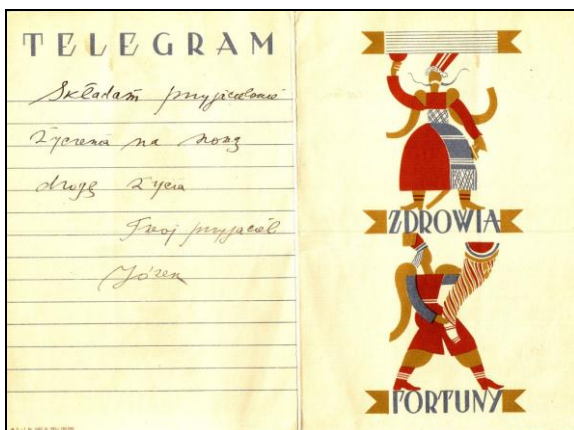 TELEGRAM
Składam przyjacielowi
Życzenia na nową
drogę Życia
Twój przyjaciel
Józek
ZDROWIA
FORTUNY